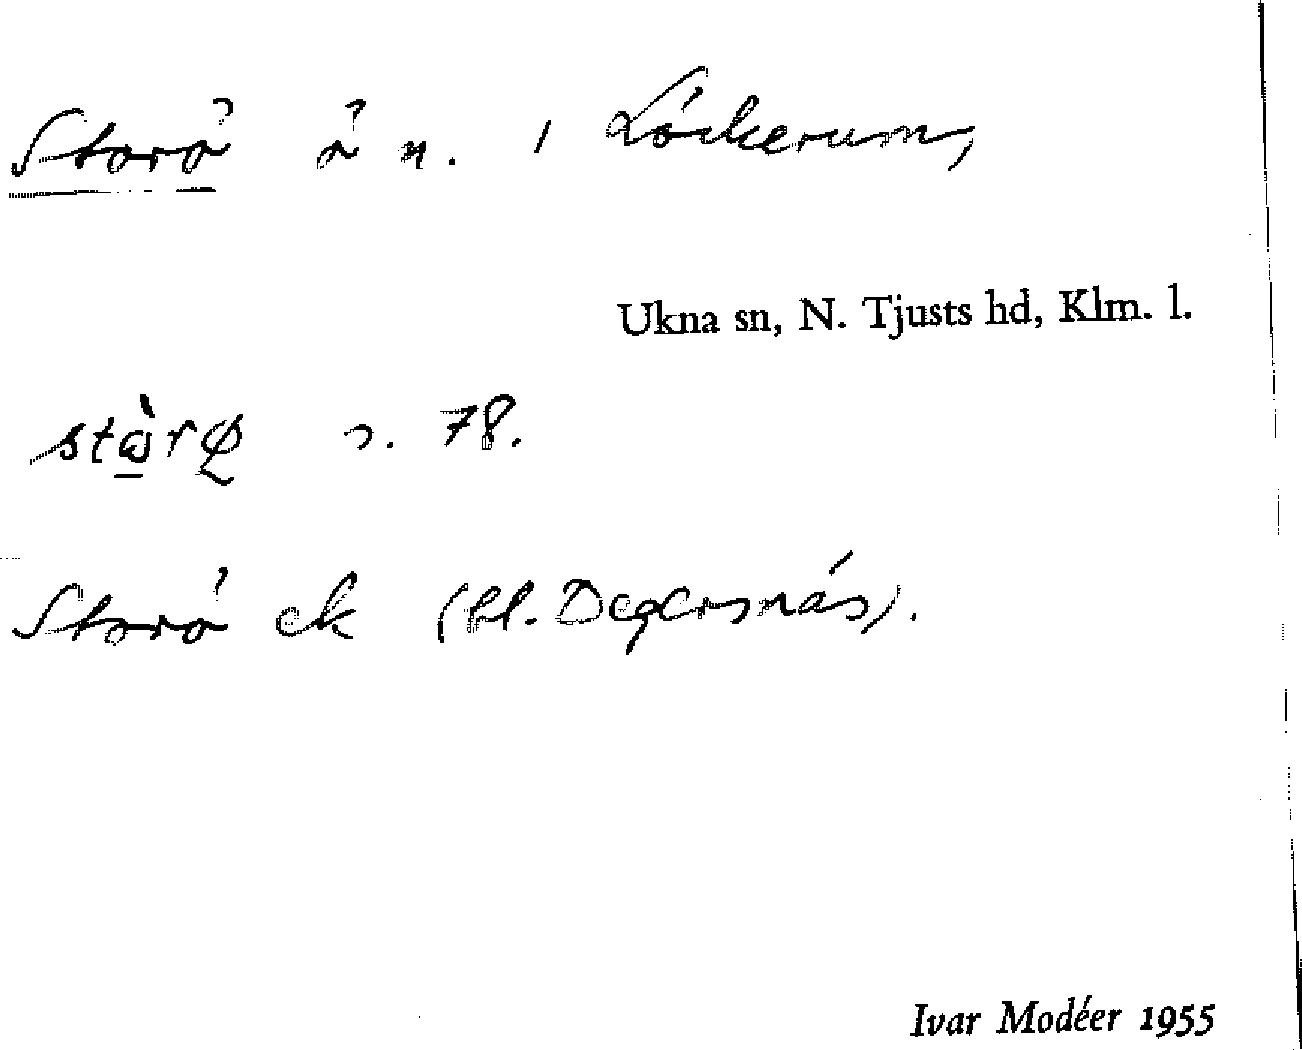 Storö ö n. i Löckerum,
Ukna sn, N. Tjusts hd, Klm. l.
s. 78.
Storö ek (bl. Degersnäs).
Ivar Modéer 1955